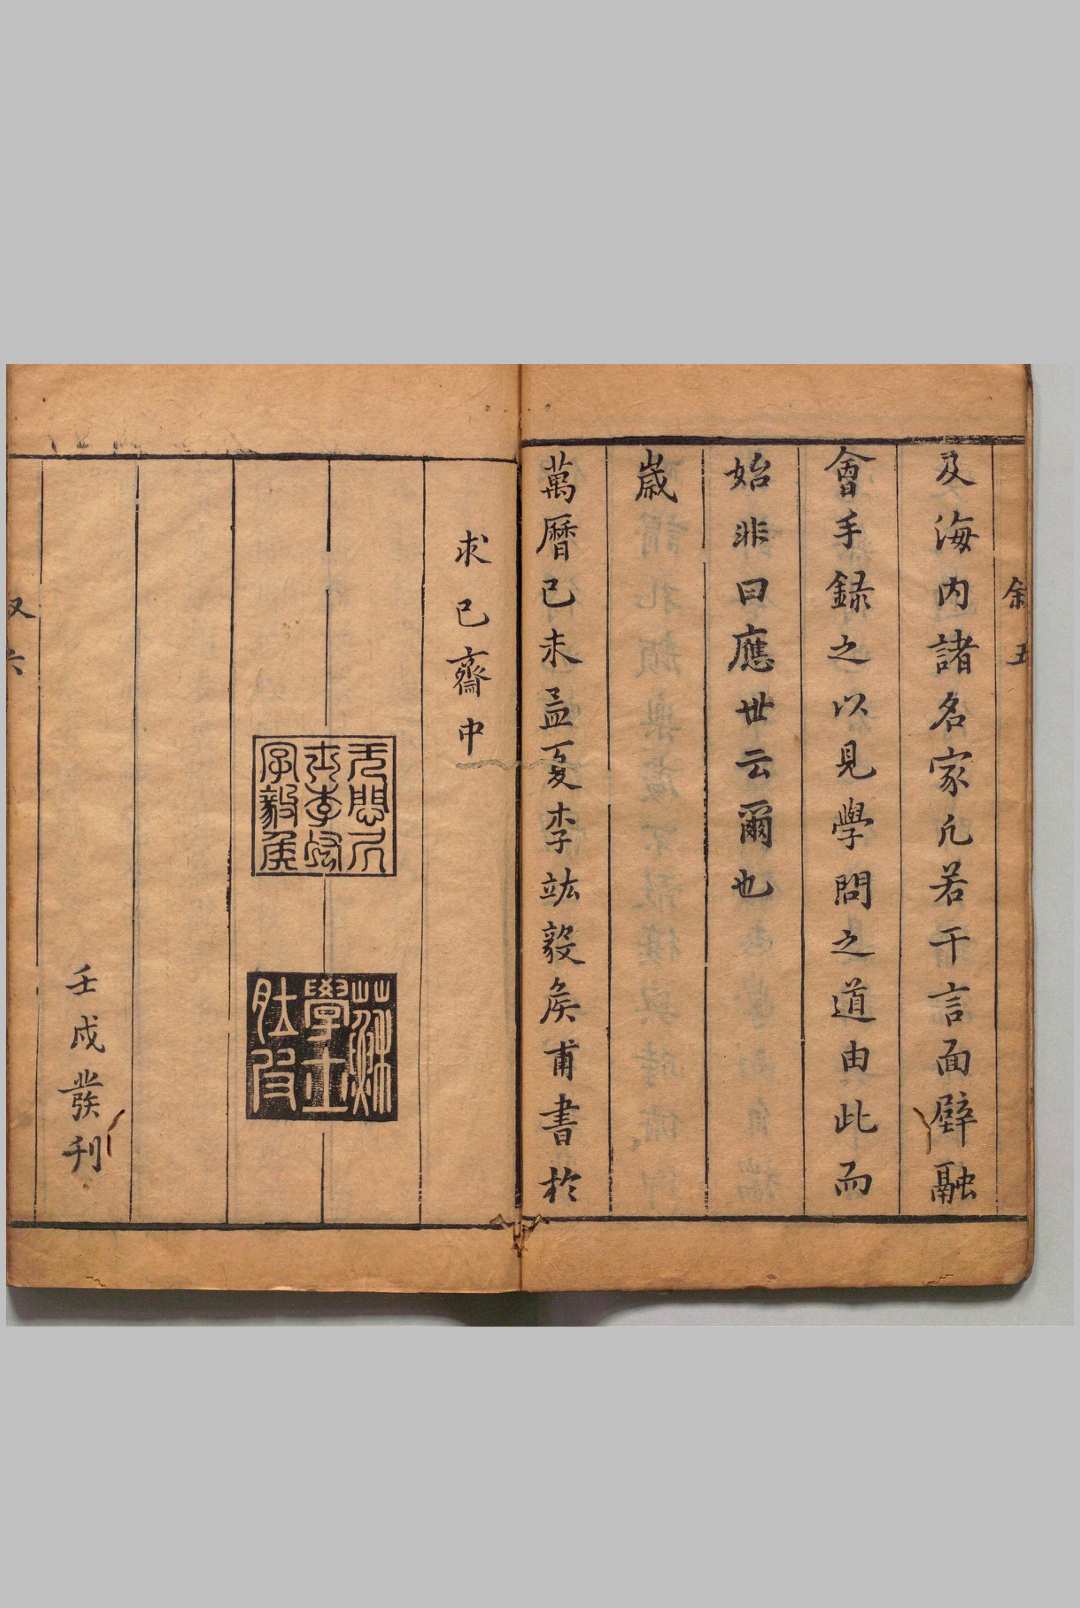 及海内諸名家凡若干言面壁融
會手録之以見學問之道由此而
始非曰應世云爾也
歲
萬曆己未孟夏李竑毅侯甫書於
求己齋中
字毅侯
蘇
學士
壬戌發刊
叙五
又六